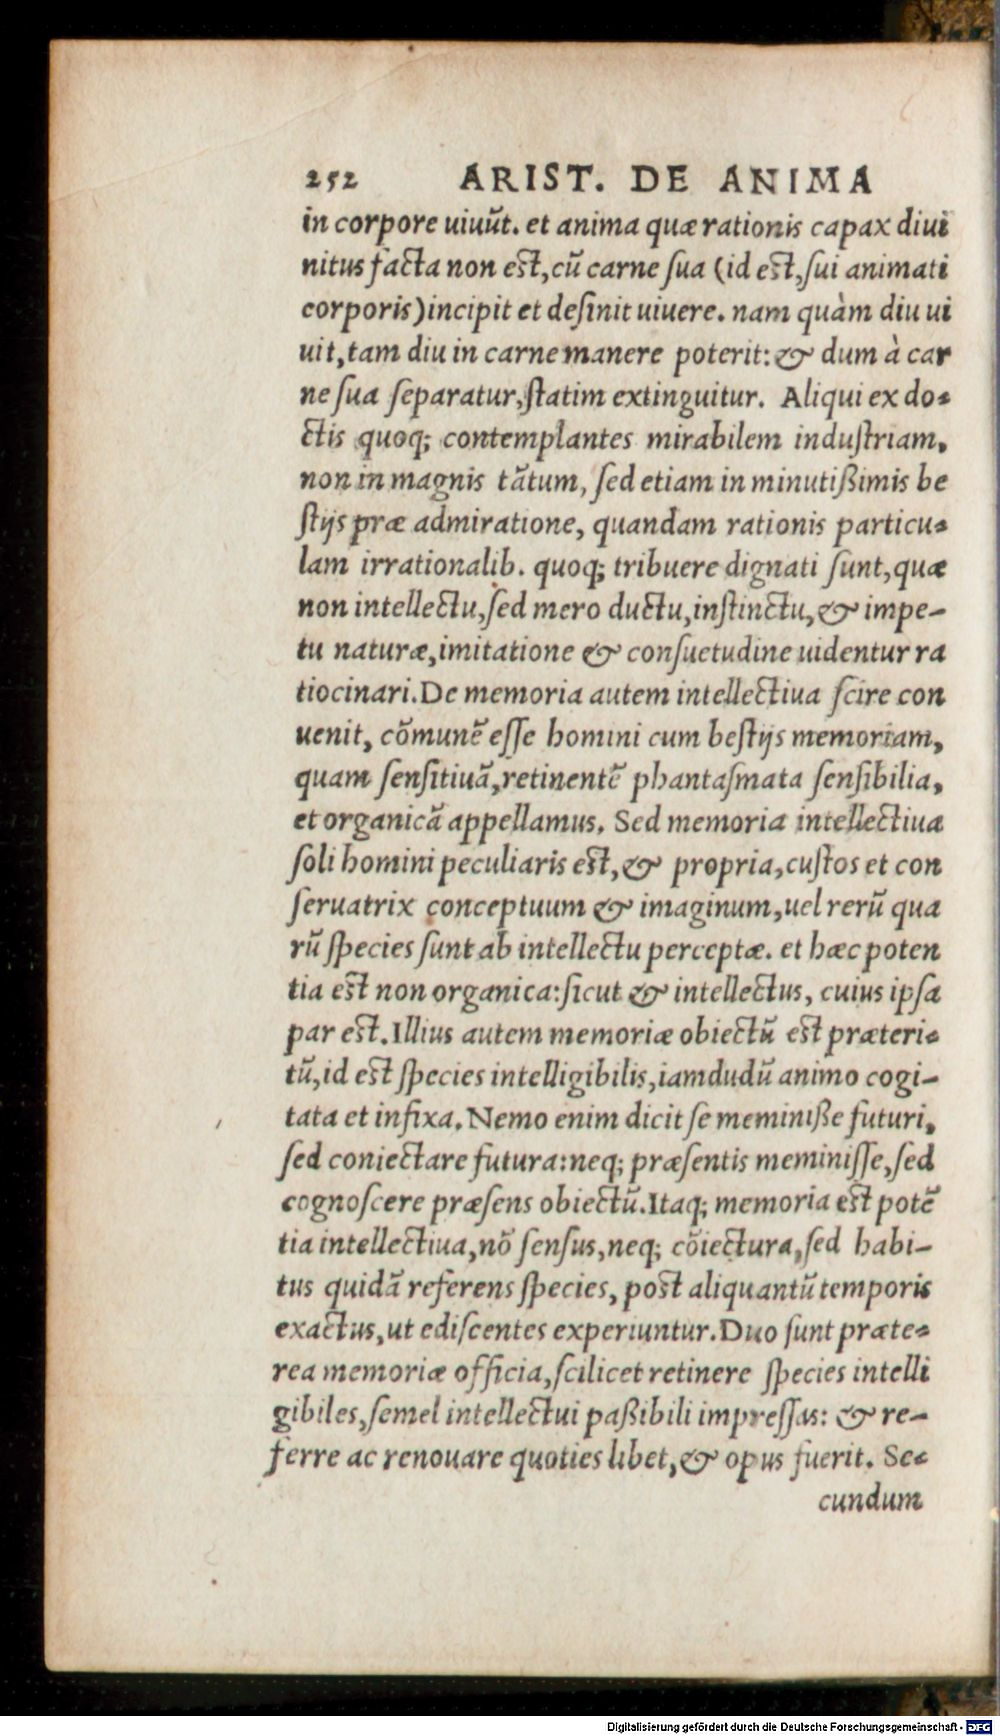 252 ARIST. DE ANIMA
in corpore uiuũt. et anima quæ rationis capax diui
nitus facta non est, cũ carne sua (id est, sui animati
corporis) incipit et desinit uiuere. nam quàm diu ui
uit, tam diu in carne manere poterit: & dum à car
ne sua separatur, statim extinguitur. Aliqui ex do-
ctis quoq; contemplantes mirabilem industriam,
non in magnis tãtum, sed etiam in minutißimis be
stijs præ admiratione, quandam rationis particu-
lam irrationalib. quoq; tribuere dignati sunt, quæ
non intellectu, sed mero ductu, instinctu, & impe-
tu naturæ, imitatione & consuetudine uidentur ra
tiocinari. De memoria autem intellectiua scire con
uenit, cõmunẽ esse homini cum bestijs memoriam,
quam sensitiuã, retinentẽ phantasmata sensibilia,
et organicã appellamus. Sed memoria intellectiua
soli homini peculiaris est, & propria, custos et con
seruatrix conceptuum & imaginum, uel rerũ qua
rũ species sunt ab intellectu perceptæ. et hæc poten
tia est non organica: sicut & intellectus, cuius ipsa
par est. Illius autem memoriæ obiectũ est præteri-
tũ, id est species intelligibilis, iamdudũ animo cogi-
tata et infixa. Nemo enim dicit se meminiße futuri,
sed coniectare futura: neq; præsentis meminisse, sed
cognoscere præsens obiectũ. Itaq; memoria est potẽ
tia intellectiua, nõ sensus, neq; cõiectura, sed habi-
tus quidã referens species, post aliquantũ temporis
exactus, ut ediscentes experiuntur. Duo sunt præte-
rea memoriæ officia, scilicet retinere species intelli
gibiles, semel intellectui paßibili impressas: & re-
ferre ac renouare quoties libet, & opus fuerit. Se-
cundum
Digitalisierung gefördert durch die Deutsche Forschungsgemeinschaft - DFG